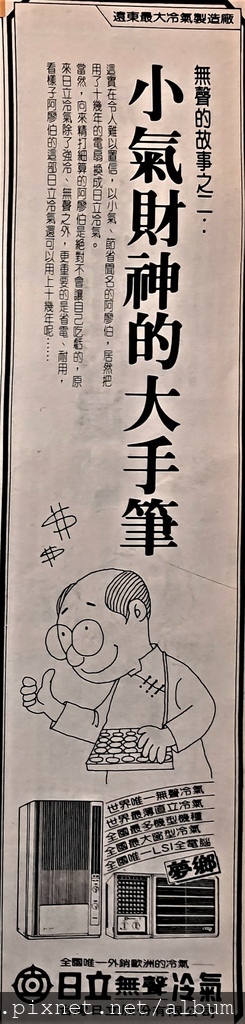 遠東最大冷氣製造廠
無聲的故事之二：
小氣財神的大手筆
這實在令人難以置信，以小氣、節省聞名的阿廖伯，居然把
用了十幾年的電扇換成日立冷氣。
當然，向來精打細算的阿廖伯是絕對不會讓自己吃虧的，原
來日立冷氣除了強冷、無聲之外，更重要的是省電、耐用，
看樣子阿廖伯的這部日立冷氣還可以用上十幾年呢……
$
$
世界唯一無聲冷氣
世界最薄直立冷氣
全國最多機型機種
全國最大窗型冷氣
全國唯一LSI全電腦
夢鄉
全國唯一外銷歐洲的冷氣
日立無聲冷氣
.pixnet.net/album